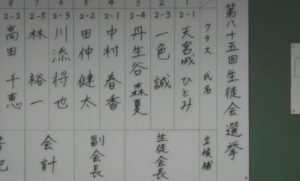 第八十五回生徒会選挙
クラス 氏名 立候補
1 2-1 天宮城ひとみ
2 2-3 一色 誠 生徒会長
3 2-4 丹生谷森夏
4 2-1 中村 春香
5 2-2 田仲 健太 副会長
6 2-3 川添 将也
7 2-5 林 裕一 会計
8 2-2 高田 千恵
書記